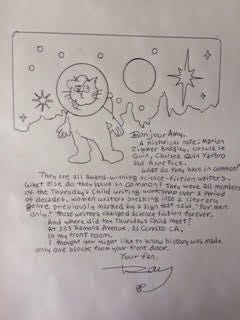 Bonjour Amy,
A historical note: Marion
Zimmer Bradley, Ursula le
Guin, Chelsea Quin Yarbro
and Anne Rice.
What do they have in common?
They are all award-winning science-fiction writers.
What else do they have in common? They were all members
of the Thursday's Child writing workshop over a period
of decades, women writers breaking into a literary
genre previously marked by a sign that said, "For men
only!" These writers changed science fiction forever.
And where did the Thursdays Child meet?
At 333 Ramona Avenue, El Cerrito CA.
In my front room.
I thought you might like to know history was made
only one block from your front door.
Your fan,
Ray